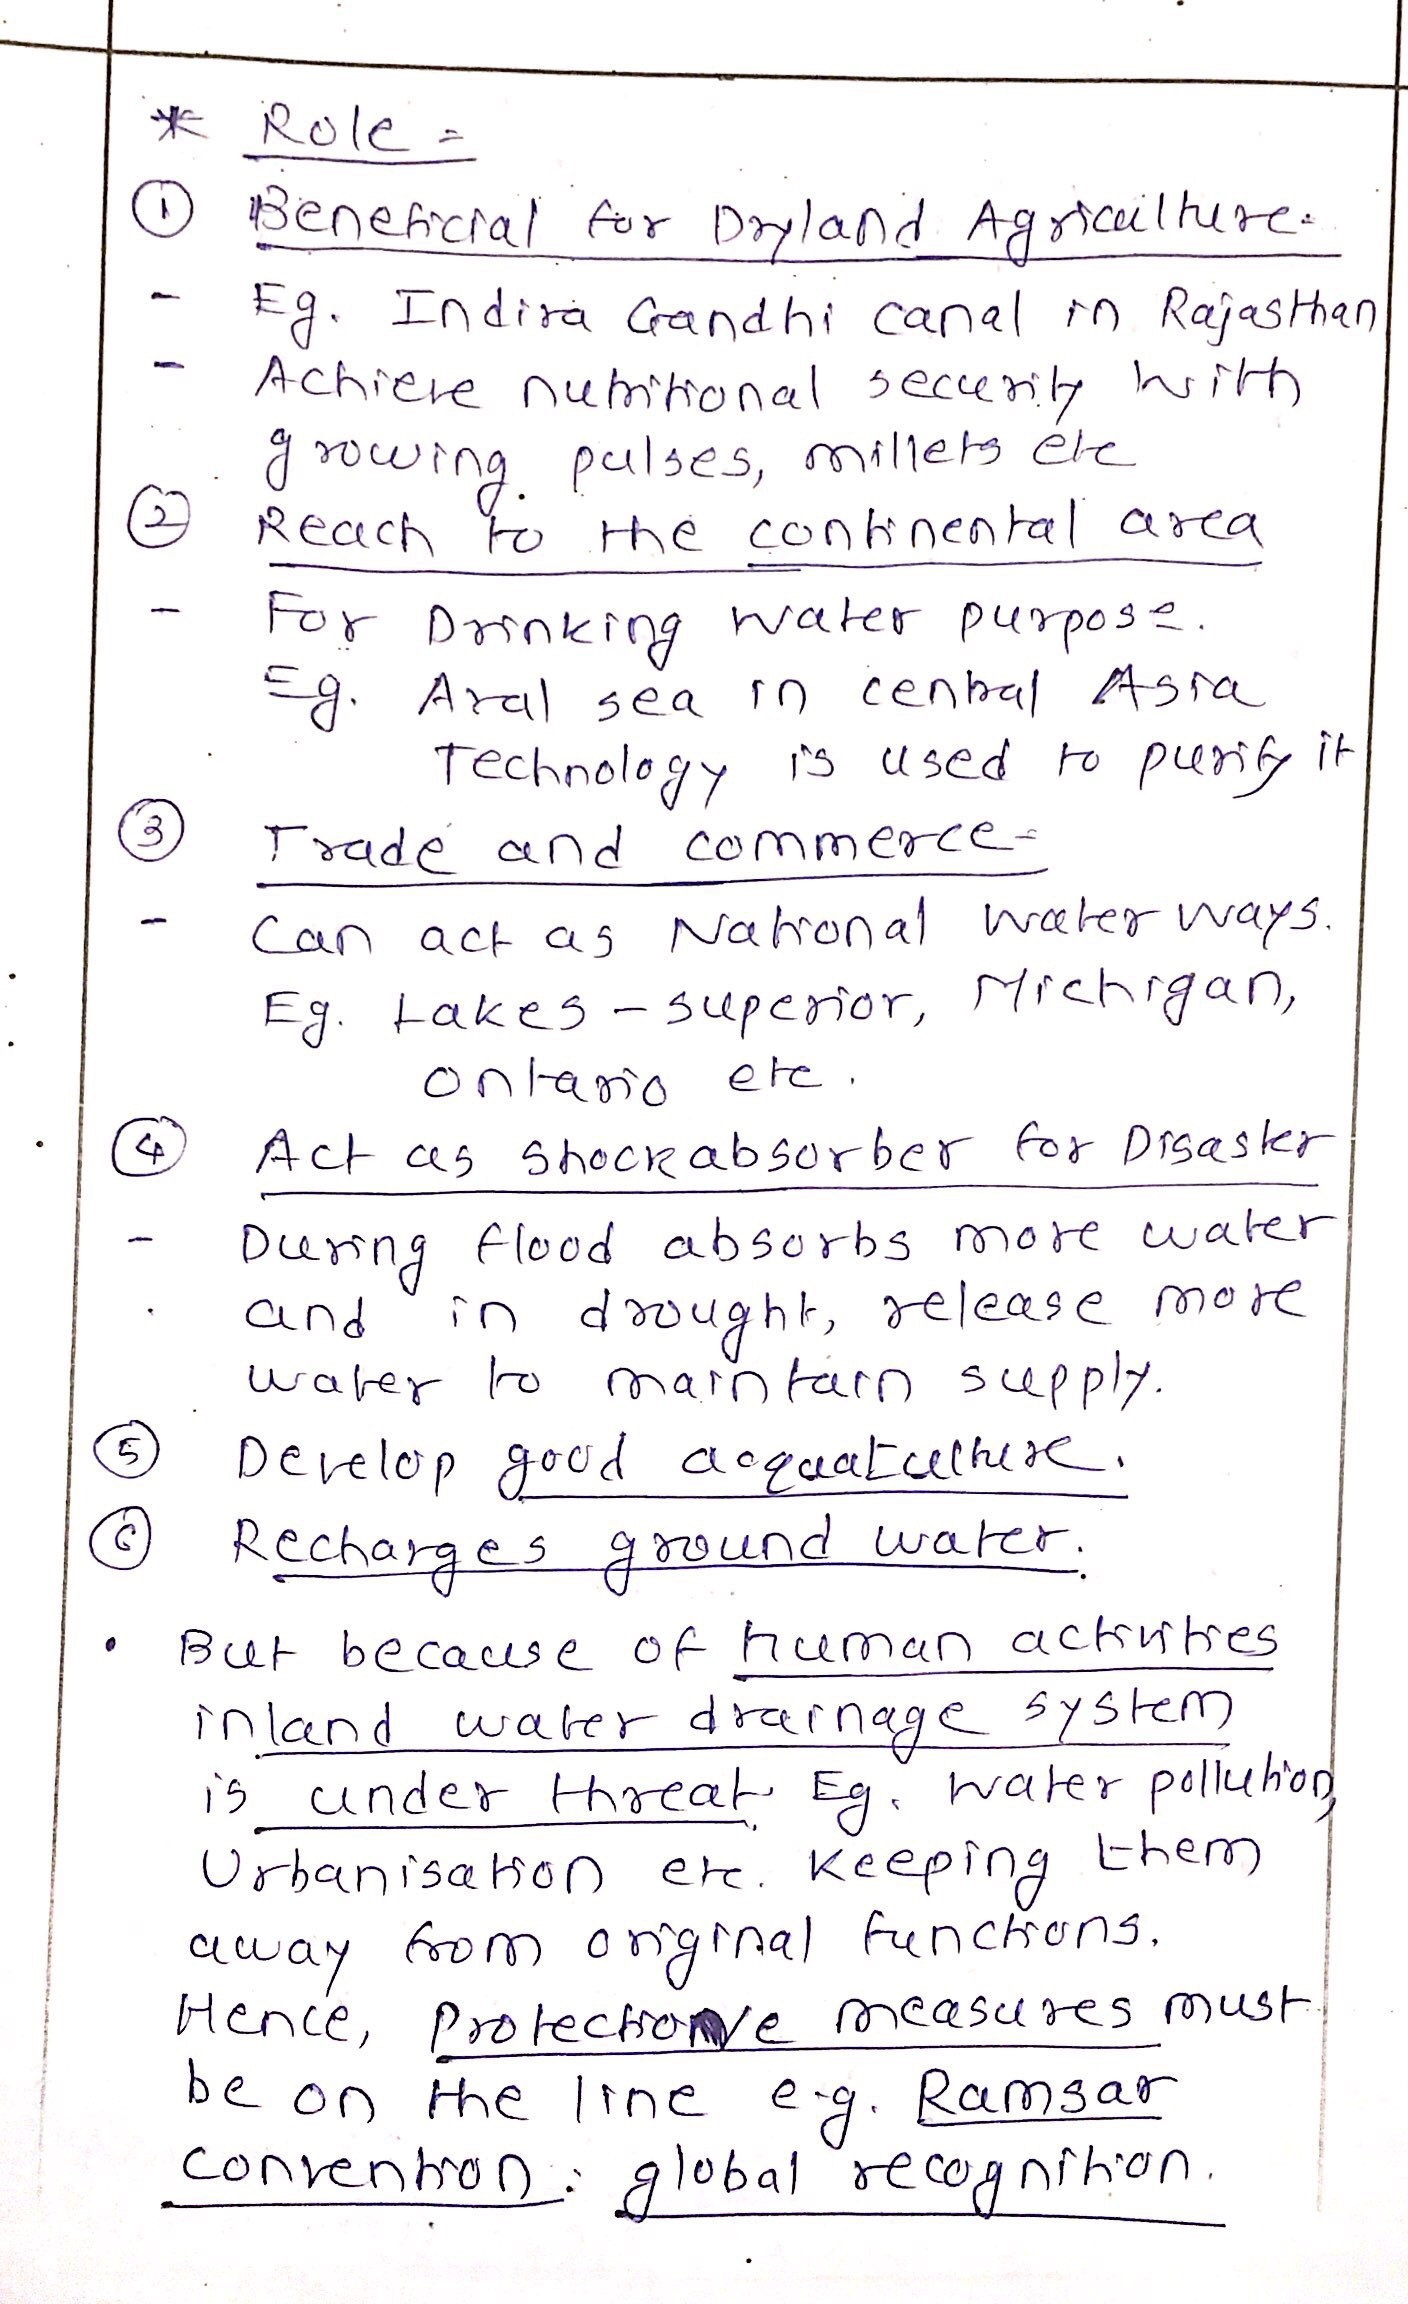 * Role =
① Beneficial for Dryland Agriculture.
- Eg. Indira Gandhi canal in Rajasthan
- Achieve nutritional security with
growing pulses, millets etc
② Reach to the continental area
- For Drinking water purpose.
Eg. Aral sea in central Asia
Technology is used to purify it
③ Trade and commerce -
- Can act as National water ways.
Eg. Lakes - superior, Michigan,
ontario etc.
④ Act as shockabsorber for Disaster
- During flood absorbs more water
and in drought, release more
water to maintain supply.
⑤ Develop good acquatculture.
⑥ Recharges ground water.
• But because of human activities
inland water drainage system
is under threat. Eg. water pollution,
Urbanisation etc. Keeping them
away from original functions.
Hence, Protective measures must
be on the line e.g. Ramsar
convention : global recognition.